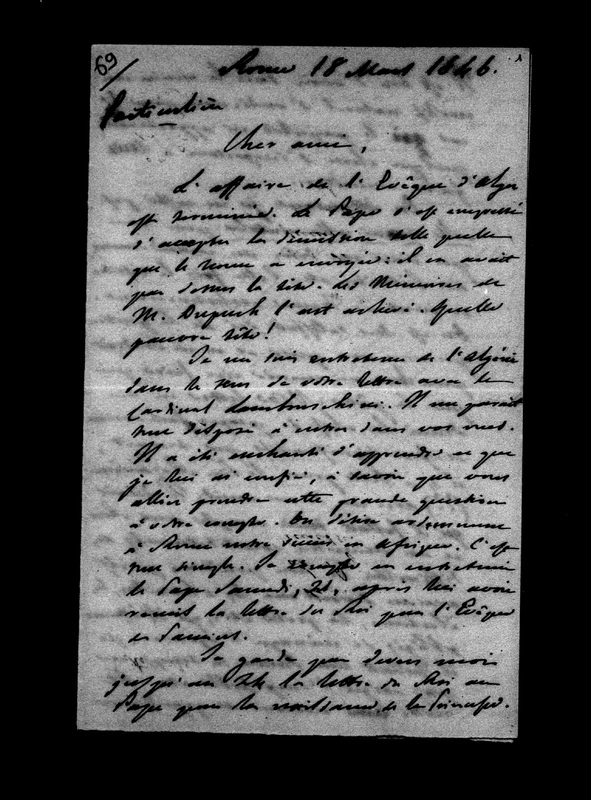 69
Rome 18 Mars 1846.
Particulière
Cher ami,
L'affaire de l'Evêque d'Alger
est terminée. Le Pape s'est empressé
d'accepter la démission telle quelle
que le Nonce a envoyée: il en avait
par dessus la tête. Les Mémoires de
M. Dupuch l'ont achevé. Quelle
pauvre tête!
Je me suis entretenu de l'Algérie
dans le sens de votre lettre avec le
Cardinal Lambruschini. Il me paraît
tout disposé à entrer dans vos vues.
Il a été enchanté d'apprendre ce que
je lui ai confié, à savoir que vous
alliez prendre cette grande question
à votre compte. On désire ardemment
à Rome notre succès en Afrique. C'est
tout simple. Je compte en entretenir
le Pape Samedi, 21, après lui avoir
remis la lettre du Roi pour l'Evêque
de Pamiers.
Je garde par devers moi
jusqu'au 24 la lettre du Roi au
Pape pour la naissance de la Princesse.